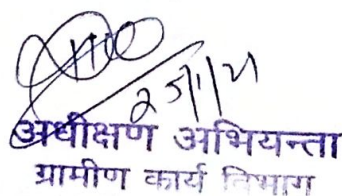 25/1/21
अधीक्षण अभियन्ता
ग्रामीण कार्य विभाग